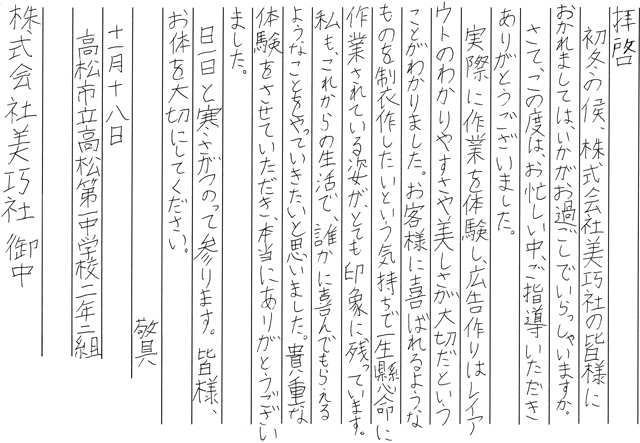 拝啓
初冬の候、株式会社美巧社の皆様に
おかれましてはいかがお過ごしでいらっしゃいますか。
さて、この度は、お忙しい中、ご指導いただき
ありがとうございました。
実際に作業を体験し、広告作りはレイア
ウトのわかりやすさや美しさが大切だという
ことがわかりました。お客様に喜ばれるような
ものを制衣作したいという気持ちで一生懸命に
作業されている姿が、とても印象に残っています。
私も、これからの生活で、誰かに喜んでもらえる
ようなことをやっていきたいと思いました。貴重な
体験をさせていただき、本当にありがとうござい
ました。
日一日と寒さがつのって参ります。皆様、
お体を大切にしてください。
敬具
十一月十八日
高松市立高松第一中学校二年二組
株式会社美巧社 御中